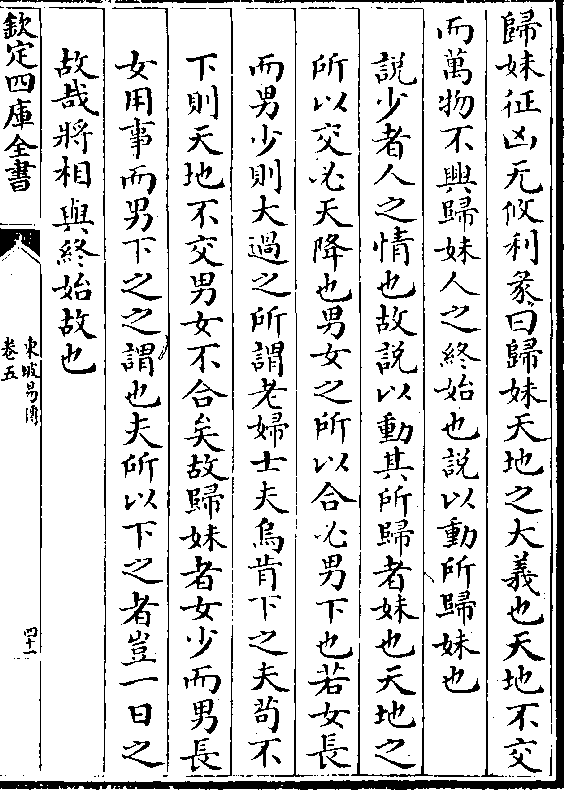 歸妹征凶无攸利彖曰歸妹天地之大義也天地不交
而萬物不興歸妹人之終始也説以動所歸妹也
説少者人之情也故説以動其所歸者妹也天地之
所以交必天降也男女之所以合必男下也若女長
而男少則大過之所謂老婦士夫烏肯下之夫苟不
下則天地不交男女不合矣故歸妹者女少而男長
女用事而男下之之謂也夫所以下之者豈一日之
故哉將相與終始故也
欽定四庫全書
東坡易傳
卷五
四十一